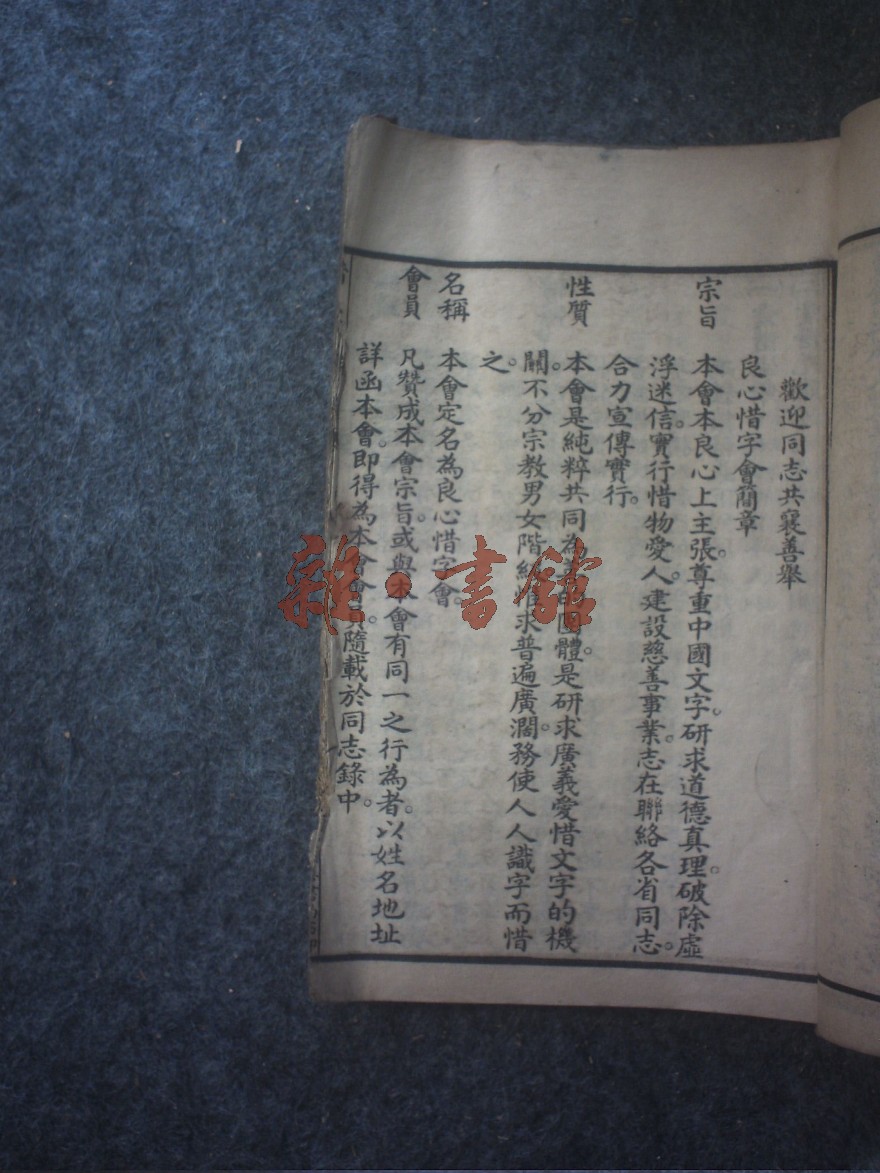 歡迎同志共襄善舉
良心惜字會簡章
宗旨 本會本良心上主張。尊重中國文字。研求道德真理。破除虛
浮迷信。實行惜物愛人。建設慈善事業。志在聯絡各省同志。
合力宣傳實行。
性質 本會是純粹共同為善的團體。是研求廣義愛惜文字的機
關。不分宗教男女階級。惟求普遍廣濶。務使人人識字而惜
之。
名稱 本會定名為良心惜字會。
會員 凡贊成本會宗旨。或與本會有同一之行為者。以姓名地址
詳函本會。即得為本會會員。隨載於同志錄中。
雜·書館